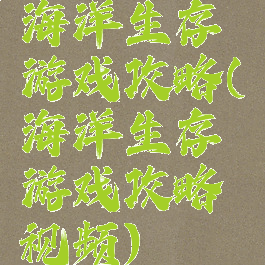 海洋生存
游戏攻略(
海洋生存
游戏攻略
视频)